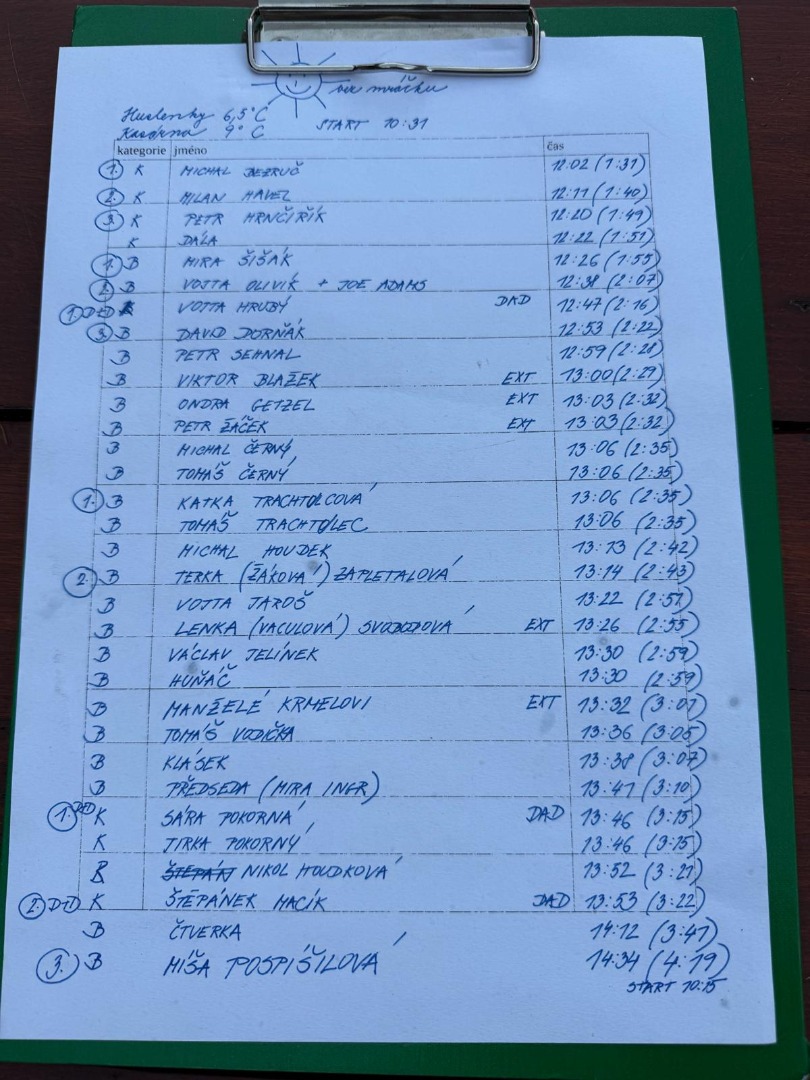 bez mráčku
Huslenky 6,5°C
Kasárna 9°C START 10:31
kategorie jméno čas
1. K MICHAL BEZRUČ 12:02 (1:31)
2. K MILAN HAVEL 12:11 (1:40)
3. K PETR HRNČIŘÍK 12:20 (1:49)
K DÁLA 12:22 (1:51)
1. B MIRA ŠIŠÁK 12:26 (1:55)
2. B VOJTA OLIVÍK + JOE ADAMS 12:38 (2:07)
1. D+D VOJTA HRUBÝ DAD 12:47 (2:16)
3. B DAVID DORŇÁK 12:53 (2:22)
B PETR SEHNAL 12:59 (2:28)
B VIKTOR BLAŽEK EXT 13:00 (2:29)
B ONDRA GETZEL EXT 13:03 (2:32)
B PETR ŽÁČEK EXT 13:03 (2:32)
B MICHAL ČERNÝ 13:06 (2:35)
B TOMÁŠ ČERNÝ 13:06 (2:35)
1. B KATKA TRACHTOLCOVÁ 13:06 (2:35)
B TOMÁŠ TRACHTOLEC 13:06 (2:35)
B MICHAL HOUDEK 13:13 (2:42)
2. B TERKA (ŽÁKOVÁ) ZAPLETALOVÁ 13:14 (2:43)
B VOJTA JAROŠ 13:22 (2:51)
B LENKA (VACULOVÁ) SVOBODOVÁ EXT 13:26 (2:55)
B VÁCLAV JELÍNEK 13:30 (2:59)
B HUŇÁČ 13:30 (2:59)
B MANŽELÉ KRMELOVI EXT 13:32 (3:01)
B TOMÁŠ VODIČKA 13:36 (3:05)
B KLÁSEK 13:38 (3:07)
B PŘEDSEDA (MIRA INGR) 13:41 (3:10)
1. D+D K SÁRA POKORNÁ DAD 13:46 (3:15)
K JIRKA POKORNÝ 13:46 (3:15)
ŠTĚPÁN NIKOL HOUDKOVÁ 13:52 (3:21)
2. D+D K ŠTĚPÁNEK MACÍK DAD 13:53 (3:22)
B ČTVERKA 14:12 (3:41)
3. B MÍŠA POSPÍŠILOVÁ 14:34 (4:19)
START 10:15